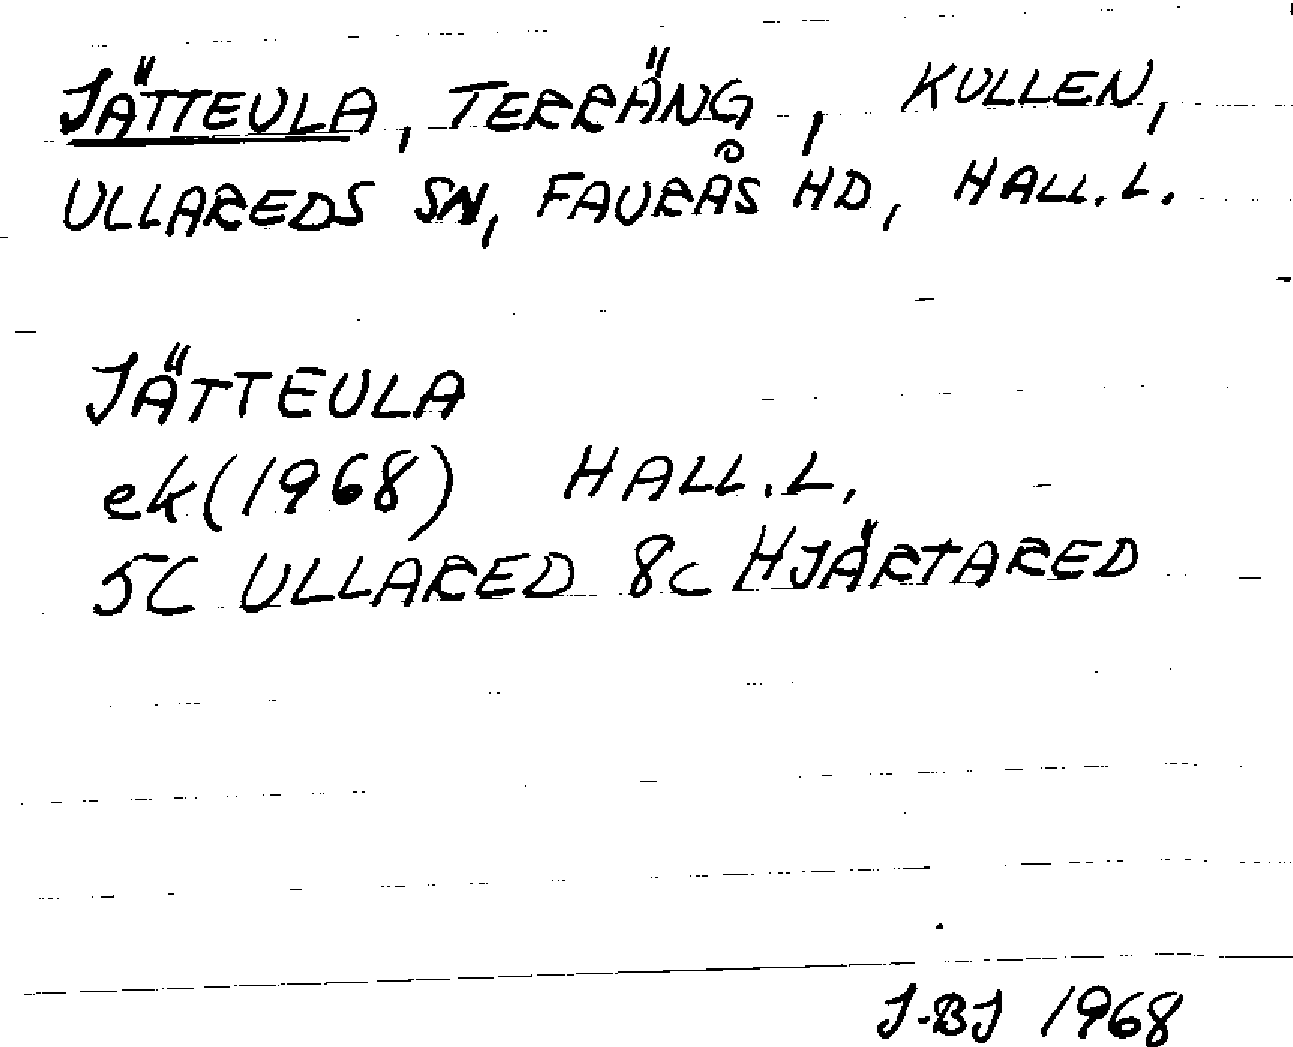 JÄTTEULA, TERRÄNG, KULLEN,
ULLAREDS SN, FAURÅS HD, HALL.L.
JÄTTEULA
ek(1968) HALL.L.
5C ULLARED 8c HJÄRTARED
J-BJ 1968